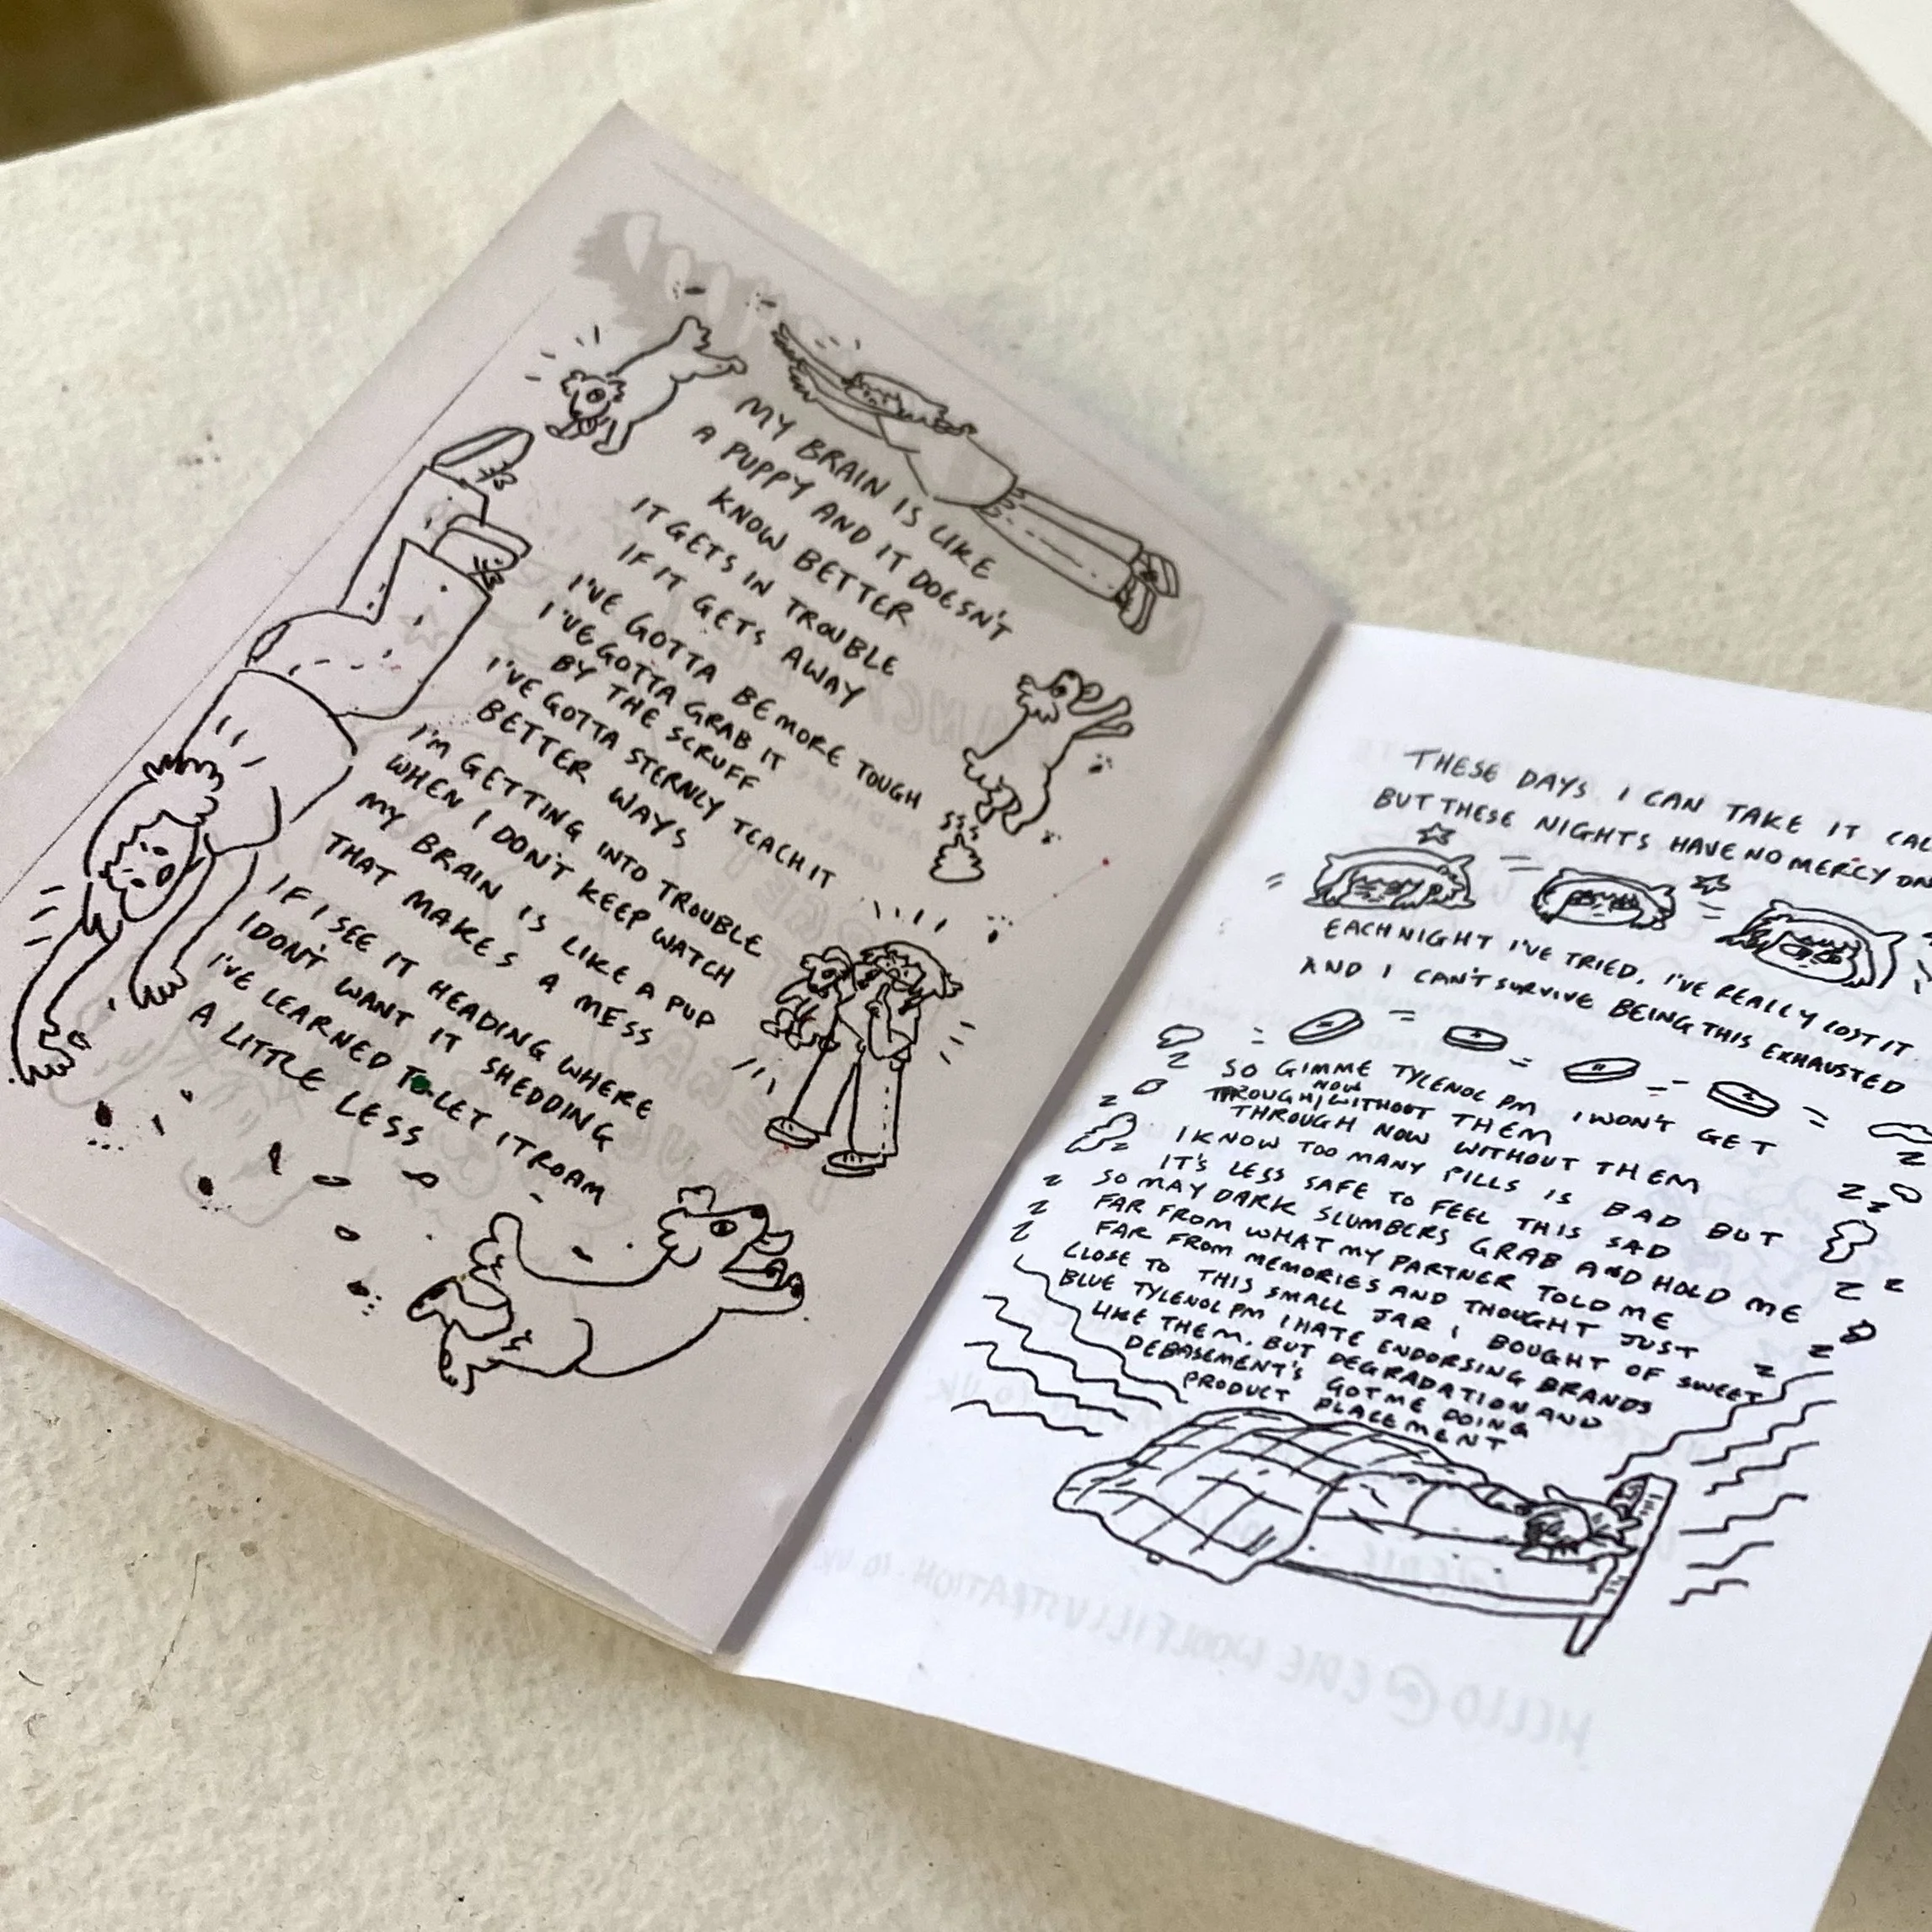 MY BRAIN IS LIKE
A PUPPY AND IT DOESN'T
KNOW BETTER
IT GETS IN TROUBLE
IF IT GETS AWAY
I'VE GOTTA BE MORE TOUGH
I'VE GOTTA GRAB IT
BY THE SCRUFF
I'VE GOTTA STERNLY TEACH IT
BETTER WAYS
I'M GETTING INTO TROUBLE
WHEN I DON'T KEEP WATCH
MY BRAIN IS LIKE A PUP
THAT MAKES A MESS
IF I SEE IT HEADING WHERE
I DON'T WANT IT SHEDDING
I'VE LEARNED TO LET IT ROAM
A LITTLE LESS
THESE DAYS I CAN TAKE IT
BUT THESE NIGHTS HAVE NO MERCY ON
EACH NIGHT I'VE TRIED, I'VE REALLY LOST IT
AND I CAN'T SURVIVE BEING THIS EXHAUSTED
SO GIMME TYLENOL PM I WON'T GET
NOW
THROUGH WITHOUT THEM
THROUGH NOW WITHOUT THEM
I KNOW TOO MANY PILLS IS BAD BUT
IT'S LESS SAFE TO FEEL THIS SAD
SO MAY DARK SLUMBERS GRAB AND HOLD ME
FAR FROM WHAT MY PARTNER TOLD ME
FAR FROM MEMORIES AND THOUGHT JUST
CLOSE TO THIS SMALL JAR I BOUGHT OF SWEET
BLUE TYLENOL PM I HATE ENDORSING BRANDS
LIKE THEM. BUT DEGRADATION AND
DEBASEMENT'S GOT ME DOING
PRODUCT PLACEMENT
HELLO@EDIEWOOLFILLUSTRATION.CO.UK